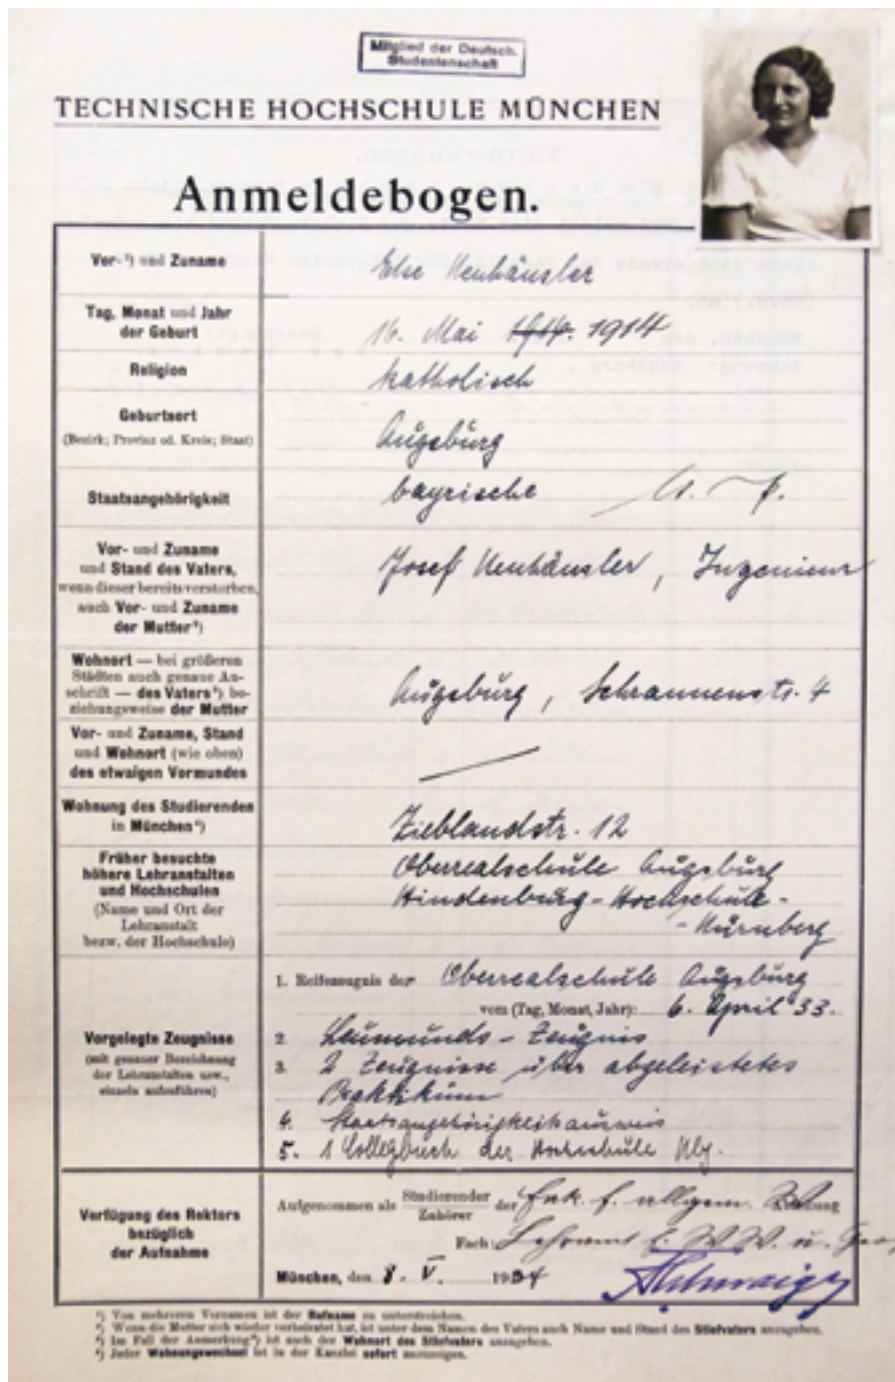 Mitglied der Deutsch.
Studentenschaft
TECHNISCHE HOCHSCHULE MÜNCHEN
Anmeldebogen.
Vor-¹) und Zuname
Else Neuhäusler
Tag, Monat und Jahr
der Geburt
16. Mai 1914
Religion
katholisch
Geburtsort
(Bezirk; Provinz od. Kreis; Staat)
Augsburg
Staatsangehörigkeit
bayrische
Vor- und Zuname
und Stand des Vaters,
wenn dieser bereits verstorben,
auch Vor- und Zuname
der Mutter²)
Josef Neuhäusler, Ingenieur
Wohnort — bei größeren
Städten auch genaue An-
schrift — des Vaters³) be-
ziehungsweise der Mutter
Augsburg, Schrannenstr. 4
Vor- und Zuname, Stand
und Wohnort (wie oben)
des etwaigen Vormundes
Wohnung des Studierenden
in München⁴)
Zieblandstr. 12
Früher besuchte
höhere Lehranstalten
und Hochschulen
(Name und Ort der
Lehranstalt
bezw. der Hochschule)
Oberrealschule Augsburg
Hindenburg-Hochschule-
-Nürnberg
Vorgelegte Zeugnisse
(mit genauer Bezeichnung
der Lehranstalten usw.,
einzeln aufzuführen)
1. Reifezeugnis der Oberrealschule Augsburg
vom (Tag, Monat, Jahr): 6. April 33.
2. Leumunds-Zeugnis
3. 2 Zeugnisse über abgeleistetes
Praktikum
4. Staatsangehörigkeitsausweis
5. 1 Collegbuch der Hochschule Nbg.
Verfügung des Rektors
bezüglich
der Aufnahme
Aufgenommen als Studierender
Zuhörer
der Fak. f. allgem. W. Abteilung
Fach: Lehramt f. W. W. u.
München, den 8. V. 1934
¹) Von mehreren Vornamen ist der Rufname zu unterstreichen.
²) Wenn die Mutter sich wieder verheiratet hat, ist unter dem Namen des Vaters auch Name und Stand des Stiefvaters anzugeben.
³) Im Fall der Anmerkung²) ist auch der Wohnort des Stiefvaters anzugeben.
⁴) Jeder Wohnungswechsel ist in der Kanzlei sofort anzuzeigen.